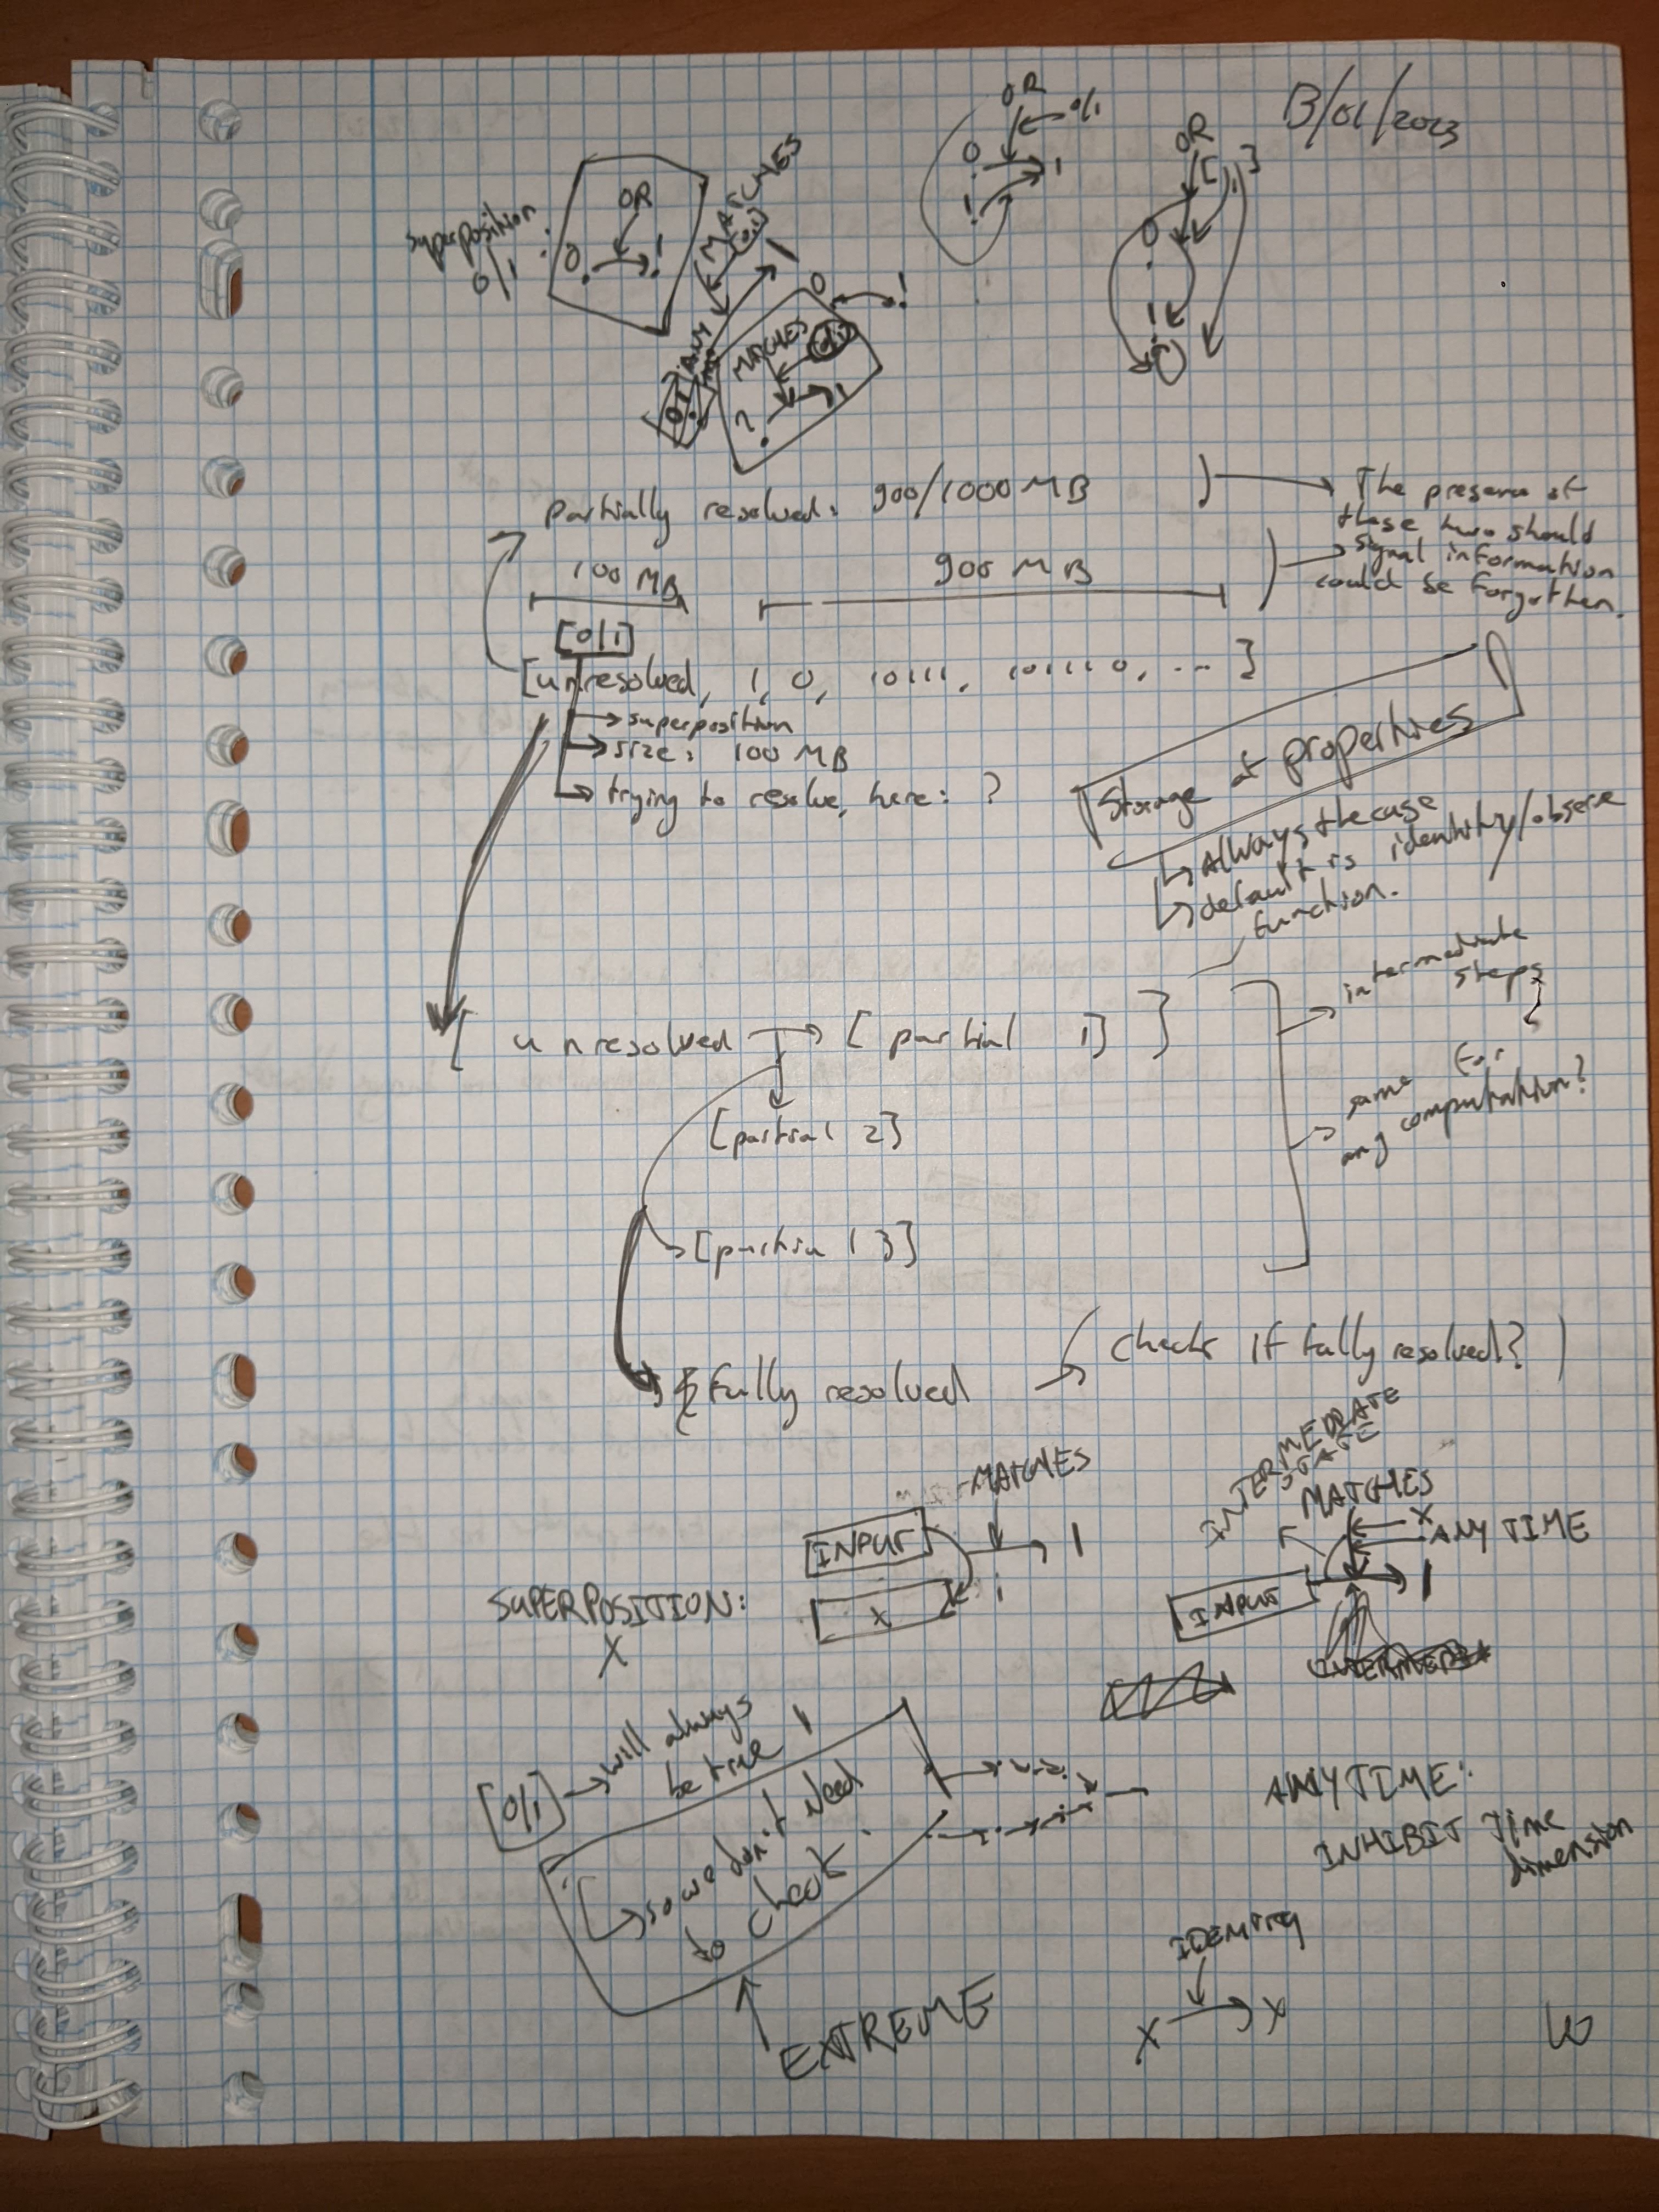 13/01/2023
OR
0/1
0
1
1
OR
[ , ]
0
1
superposition
0/1 :
OR
0
1
MATCHES
[0,1]
1
0
1
ANY
[0 1]
MATCHES
0/1
?
1
Partially resolved: 900/1000 MB
The presence of
these two should
signal information
could be forgotten.
100 MB
900 MB
[0/1]
[unresolved, 1, 0, 10111, 101110, ... ]
superposition
size: 100 MB
trying to resolve, here: ?
Storage of properties
Always the case
default is identity/observe
function.
[ unresolved → [ partial 1] ]
[partial 2]
[partial 3]
intermediate
steps
same for
any computation?
[fully resolved
(checks if fully resolved?)
MATCHES
INPUT
1
SUPERPOSITION:
X
X
INTERMEDIATE
STATE
MATCHES
X
ANY TIME
INPUT
1
[0/1] → will always
be true 1
so we don't need
to check.
EXTREME
ANY TIME:
INHIBIT Time
dimension
IDENTITY
X → X